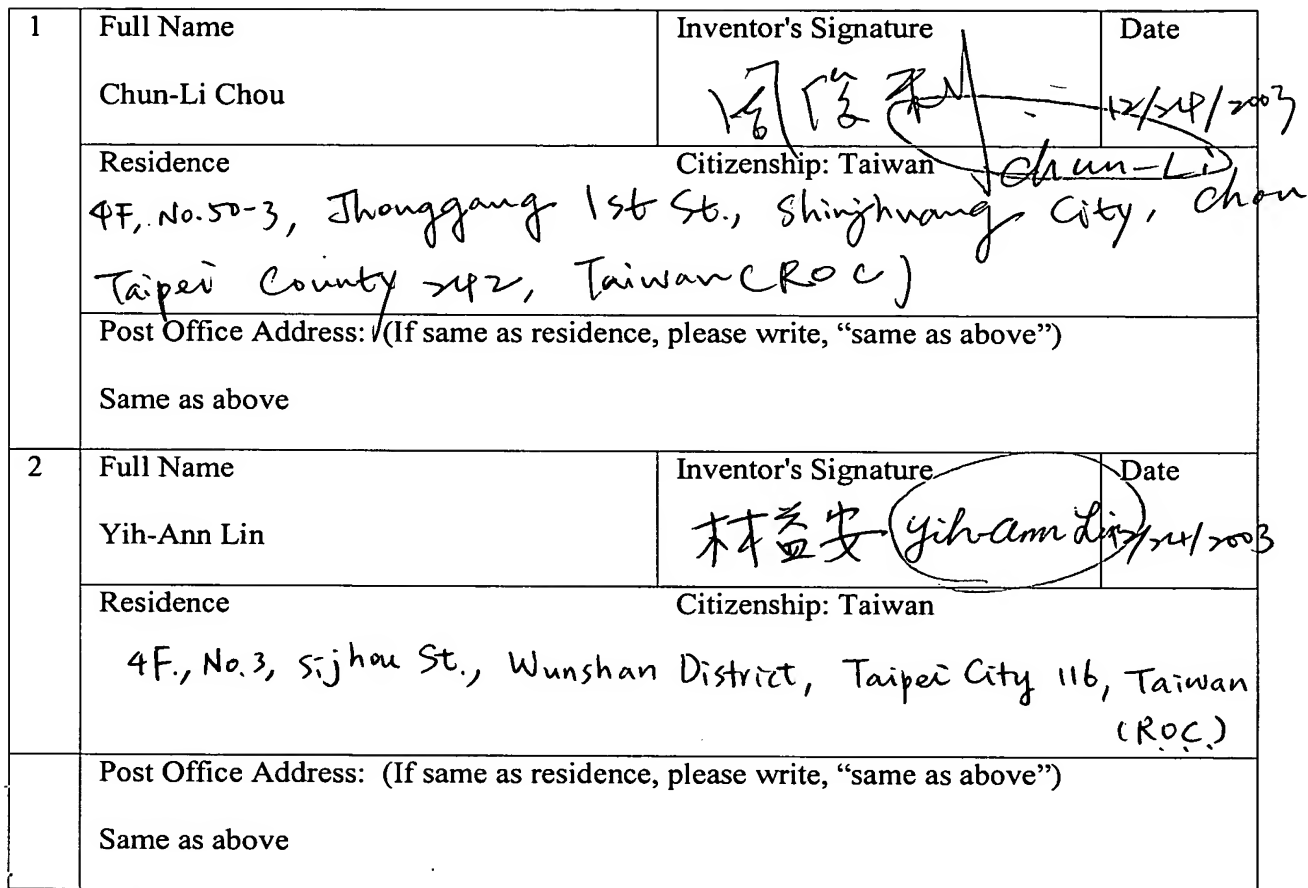 1 Full Name Inventor's Signature Date
Chun-Li Chou 周俊利 12/24/2003
Residence Citizenship: Taiwan Chun-Li Chou
4F, No.50-3, Jhonggang 1st St., Shinjhuang City,
Taipei County 242, Taiwan (ROC)
Post Office Address: (If same as residence, please write, “same as above”)
Same as above
2 Full Name Inventor's Signature Date
Yih-Ann Lin 林益安 Yih-Ann Lin 12/24/2003
Residence Citizenship: Taiwan
4F., No.3, Sijhou St., Wunshan District, Taipei City 116, Taiwan
(R.O.C.)
Post Office Address: (If same as residence, please write, “same as above”)
Same as above